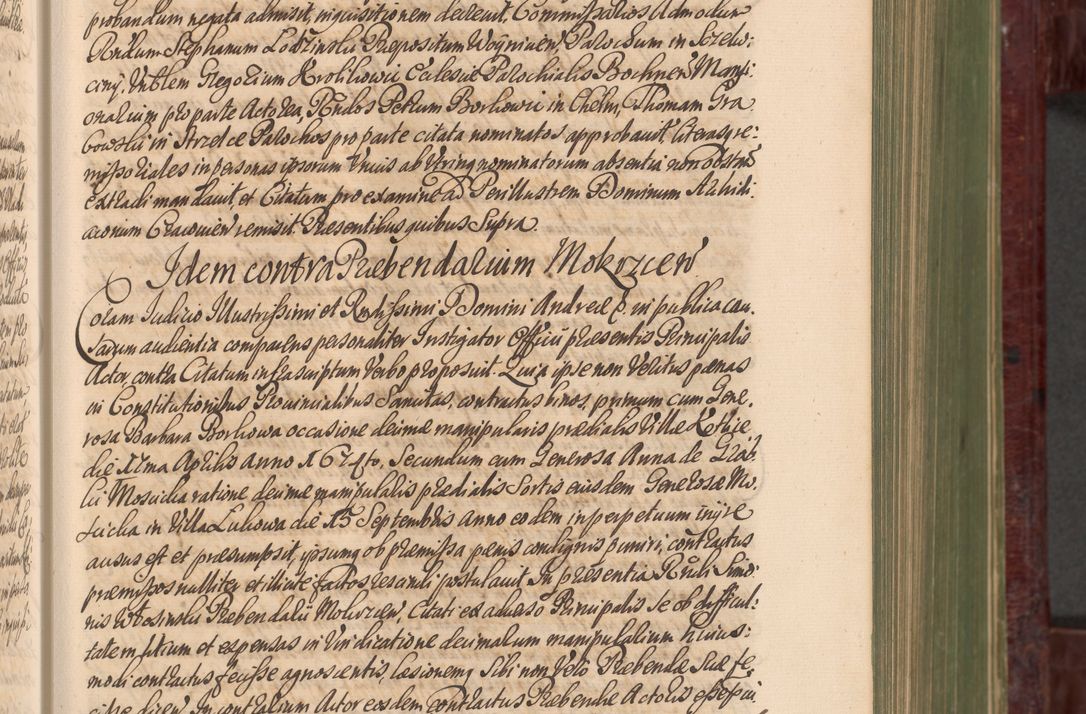 probandum negata admisit, inquisitionem decrevit. Commissarios Admodum
Rndum Stephanum Lodzinski Præpositum Woynicen, Parochum in Szczew:
Vnblem Gregorium Krolikowic Ecclesiæ Parochialis Bochnen Mansi:
onarium pro parte Actorea, Rndos Petrum Borkowic in Chelm, Thomam Gra
bowski in Strzelce Parochos pro parte citata nominatos approbavit literas re:
missoriales in personas ipsorum Unius ab Utrinq nominatorum absentia non obstan
extradi mandavit, et Citatum pro examine ad Perillustrem Dominum Archidi
aconum Cracovien remisit. Præsentibus quibus Supra.
Idem contra Præbendarium Mokrzcen
Coram Iudicio Illustrissimi et Rndissimi Domini Andreæ E. in publica cau:
sarum audientia comparens personaliter Instigator Officii præsentis Principalis
Actor, contra Citatum infrascriptum Verbo proposuit. Quia ipse non Veritus pœnas
in Constitutionibus Provincialibus Sancitas, contractus binos, primum cum Gene:
rosa Barbara Borkowa occasione decimæ manipularis prædialis Villæ
die 17ma Aprilis Anno 1674to, Secundum cum Generosa Anna de Grab
ratione decimæ manipularis prædialis Sortis eiusdem Generosæ Mo:
in Villa Lukowa die 15 Septembris Anno eodem in perpetuum inire
ausus est et præsumpsit, ipsumq ob præmissa pœnis condignis puniri, contractus
præmissos nulliter et illicite factos rescindi postulavit. In præsentia Rndi Simo:
nis Præbendarii Mokrzcen, Citati ex adverso Principalis se ob difficul:
tatem litium et expensas in Vindicatione decimarum manipularium huius:
modi contractus fecisse agnoscentis, læsionemq Sibi non Vero Præbendæ Suæ fe:
In contrarium Actor eosdem contractus Præbendæ Actores esse